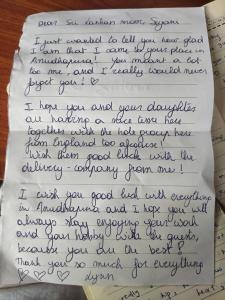 Dear Sri Lankan mom, Siyani
I just wanted to tell you how glad
I am that I came to your place in
Anuradhapura! You meant a lot
too me, and I really would never
forget you! ♡
I hope you and your daughter
are having a nice time here
together with the hole group here
from England too
Wish them good luck with the
delivery company from me!
I wish you good luck with everything
in Anuradhapura and I hope you will
always stay enjoying your work
and your hobby with the guests,
because you are the best!
Thank you so much for everything
♡ ♡ ♡